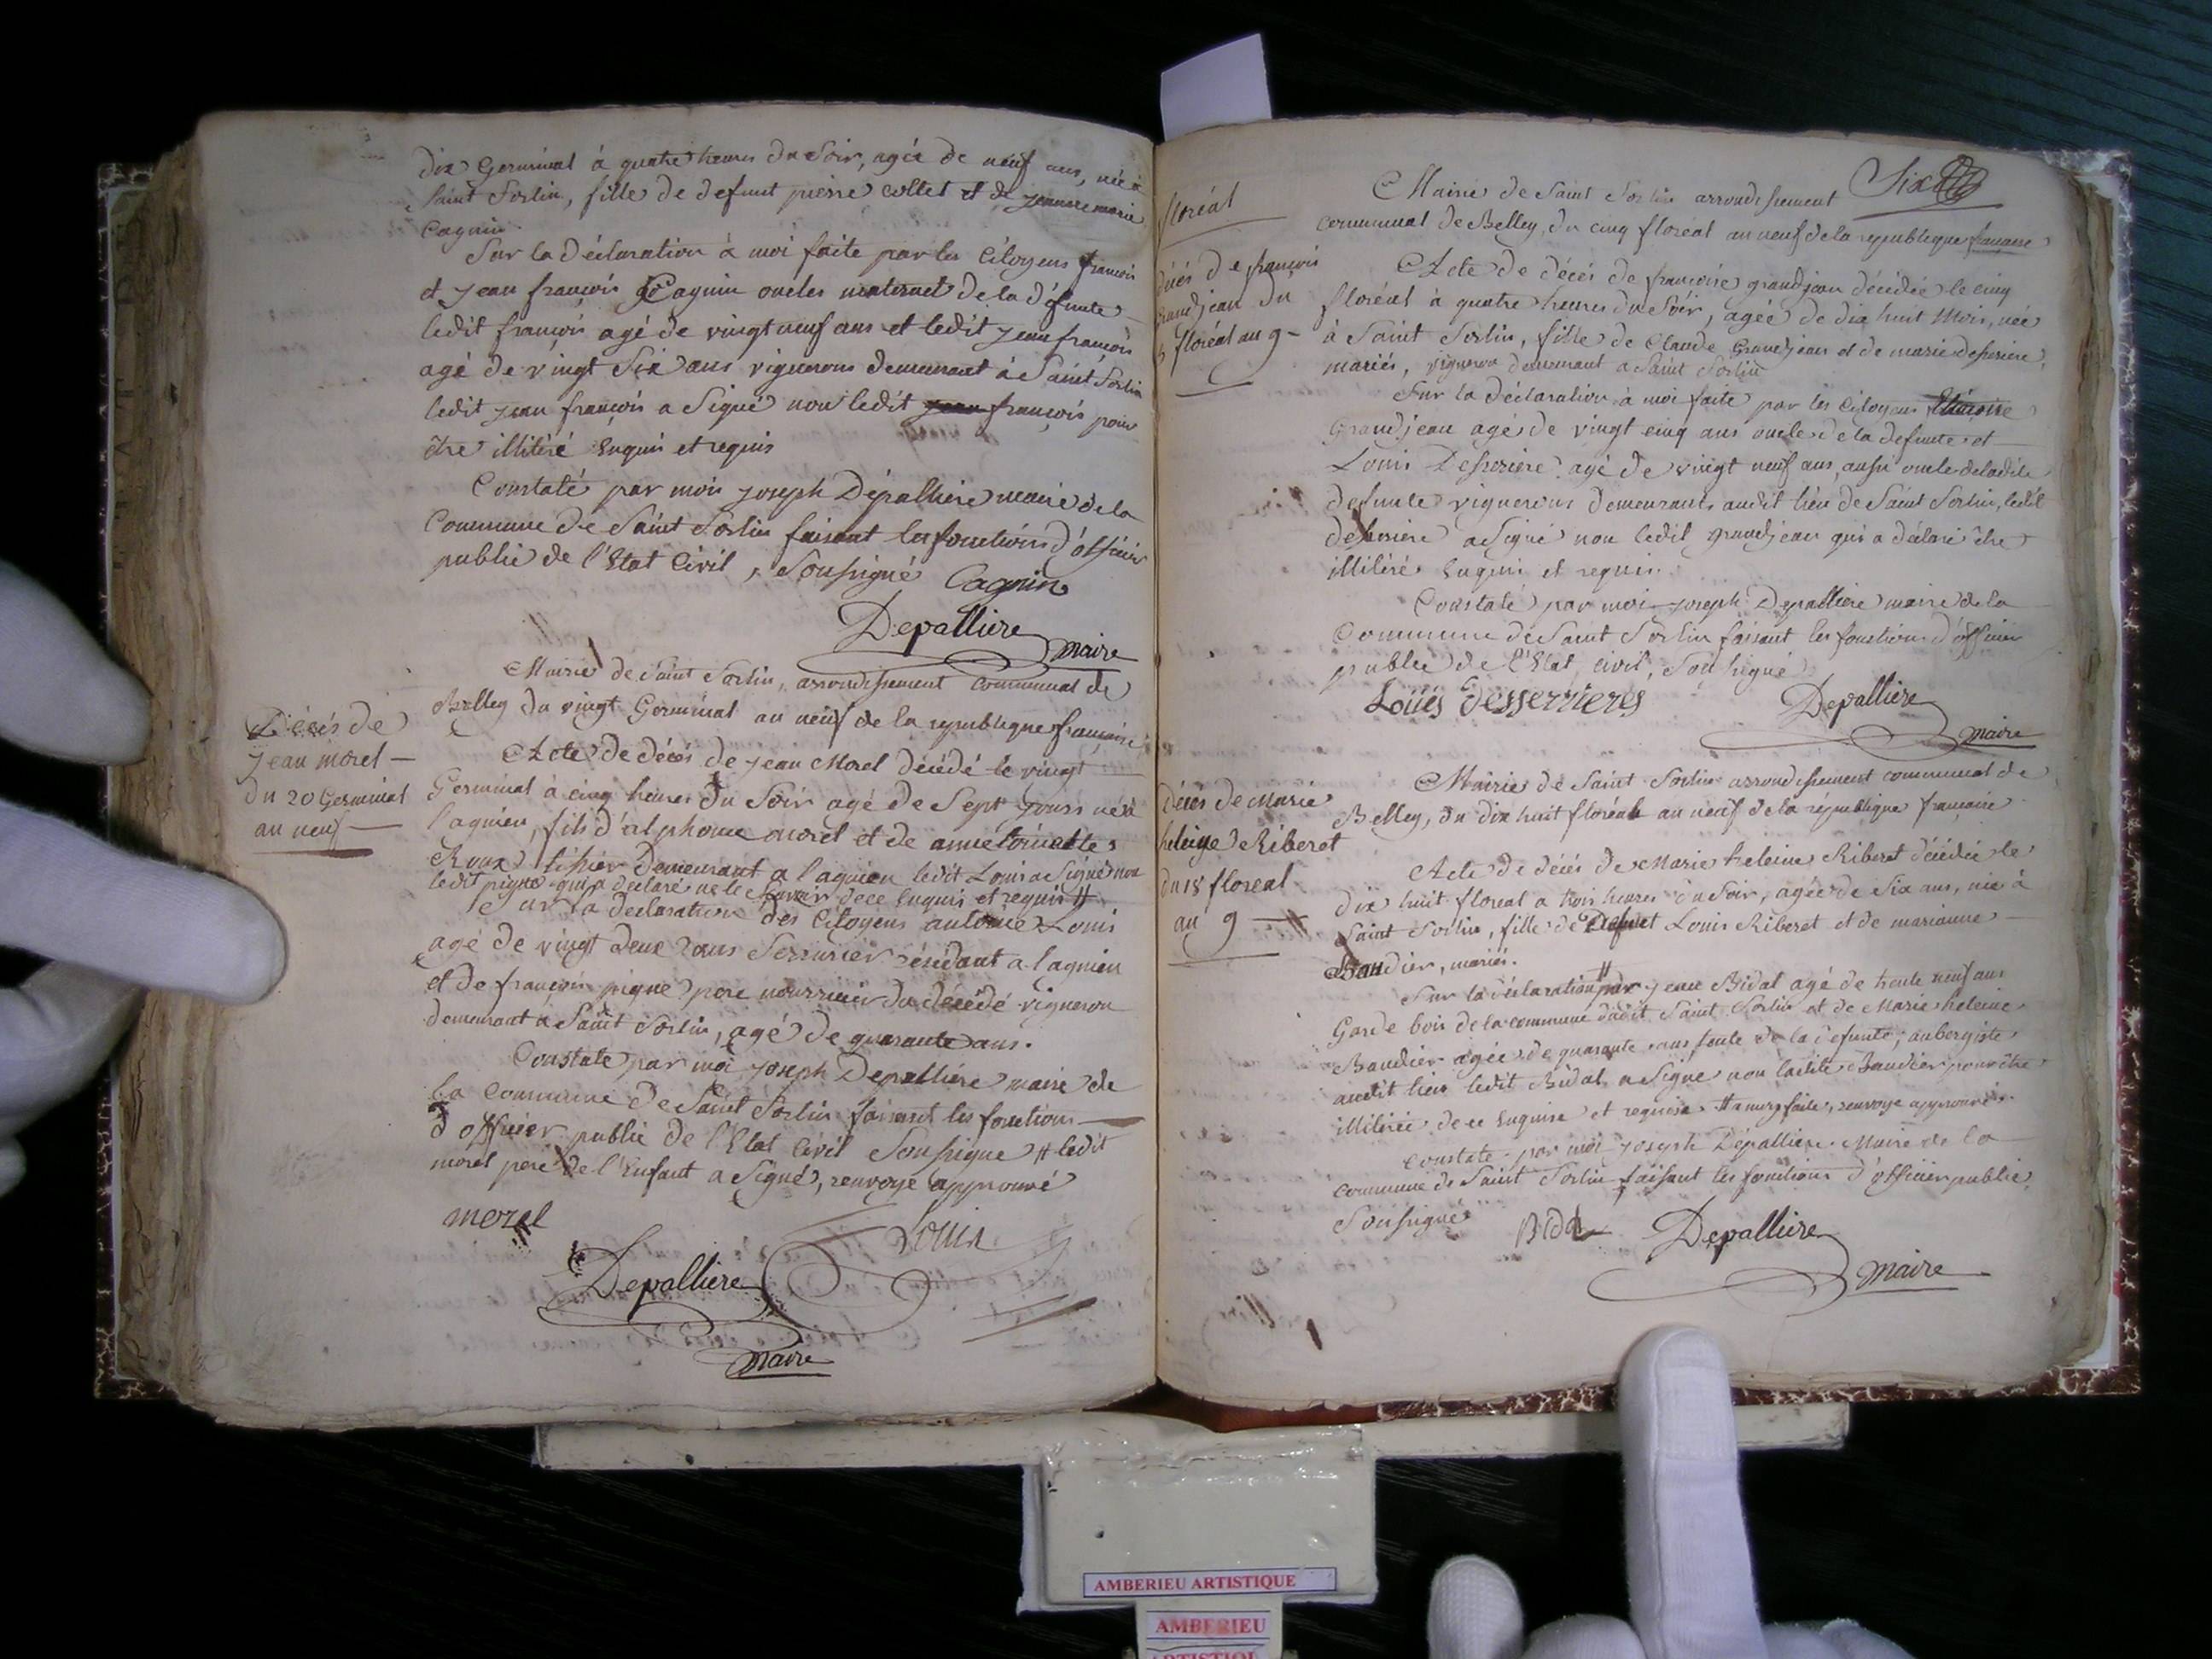 dix Germinal à quatre heures du Soir, agée de neuf ans, née à
Saint Sorlin, fille de defunt pierre collet et de jeanne marie
Cagnin
Sur la déclaration à moi faite par les Citoyens françois
et jean françois Cagnin oncles maternel de la défunte
ledit françois agé de vingt neuf ans et ledit jean françois
agé de vingt Six ans vignerons demeurant à Saint Sorlin
ledit jean françois a Signé non ledit jean françois pour
être illitéré Enquis et requis
Constaté par moi joseph Dépallière maire de la
Commune de Saint Sorlin faisant les fonctions d'officier
public de l'Etat Civil, Soussigné Cagnin
Depalliere
maire
Mairie de Saint Sorlin, arrondissement communal de
Belley du vingt Germinal an neuf de la republique française
Décés de
jean morel —
du 20 Germinal
an neuf —
Acte de décés de jean Morel décédé le vingt
Germinal à cinq heures du Soir agé de Sept jours né à
lagnieu, fils d'alphonse morel et de
Roux tissier demeurant a lagnieu ledit Louis a Signé non
ledit pigne qui a declaré ne le Savoir de ce Enquis et requis #
Sur la declaration des Citoyens antoine Louis
agé de vingt deux ans Serrurier résidant a lagnieu
et de françois pigne pere nourricier du décédé vigneron
demeurant à Saint Sorlin, agé de quarante ans.
Constaté par moi joseph Depalliere maire de
la Commune de Saint Sorlin faisant les fonctions
d'officier public de l'Etat Civil Soussigné # ledit
morel pere de l'Enfant a Signé, renvoye approuvé
morel
Louis
Depalliere
maire
Six
floréal
Mairie de Saint Sorlin arrondissement
communal de Belley, du cinq floréal an neuf de la republique française
décés de françoise
grandjean du
5 floréal an 9 —
Acte de décés de françoise grandjean décédée le cinq
floréal à quatre heures du Soir, agée de dix huit Mois, née
à Saint Sorlin, fille de Claude Grandjean et de marie desseriere,
mariés, vigneron demeurant a Saint Sorlin
Sur la déclaration à moi faite par les Citoyens
Grandjean agé de vingt cinq ans oncle de la defunte et
Louis Desseriere agé de vingt neuf ans, aussi oncle de ladite
defunte vignerons demeurants audit lieu de Saint Sorlin, ledit
desseriere a Signé non ledit grandjean qui a déclaré être
illitéré Enquis et requis.
Constaté par moi joseph Depalliere maire de la
Commune de Saint Sorlin faisant les fonctions d'officier
public de l'Etat civil, Soussigné
Loüis desserrieres
Depalliere
maire
Mairie de Saint Sorlin arrondissement communal de
Belley, du dix huit floréal an neuf de la république française
décés de Marie
heleine Riberet
du 18 floreal
an 9 —
Acte de décés de Marie heleine Riberet décédée le
dix huit floreal a trois heures du Soir, agée de Six ans, née à
Saint Sorlin, fille de Defunt Louis Riberet et de marianne
Baudier, mariés.
Sur la déclaration # par jean Bidal agé de trente neuf ans
Garde bois de la commune dudit Saint Sorlin et de Marie heleine
Baudier agée de quarante ans tente de la defunte; aubergiste
audit lieu ledit Bidal a Signé non ladite Baudier pour être
illitérée de ce Enquise et requise # a moi faite, renvoye approuvé.
Constaté par moi joseph Dépalliere Maire de la
commune de Saint Sorlin faisant les fonctions d'officier public,
Soussigné
Bidal
Depalliere
maire
AMBERIEU ARTISTIQUE
AMBERIEU
ARTISTIQUE